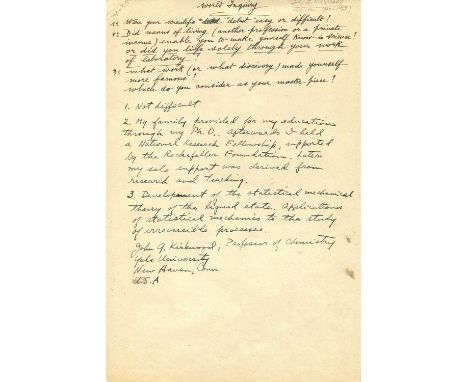 World Inquiry
1º Were your scientific debut easy or difficult?
2º Did means of living (another profession or a private
income) enable you to make yourself known in science?
or did you life solely through your work
of laboratory
3º what work (or what discovery) made yourself
more famous?
which do you consider as your master-piece?
1. Not difficult
2. My family provided for my education
through my Ph.D. Afterwards I held
a National Research Fellowship, supported
by the Rockefeller Foundation. Later
my sole support was derived from
research and teaching.
3. Development of the statistical mechanical
theory of the liquid state. Applications
of statistical mechanics to the study
of irreversible processes.
John G. Kirkwood, Professor of Chemistry
Yale University
New Haven, Conn
U.S.A